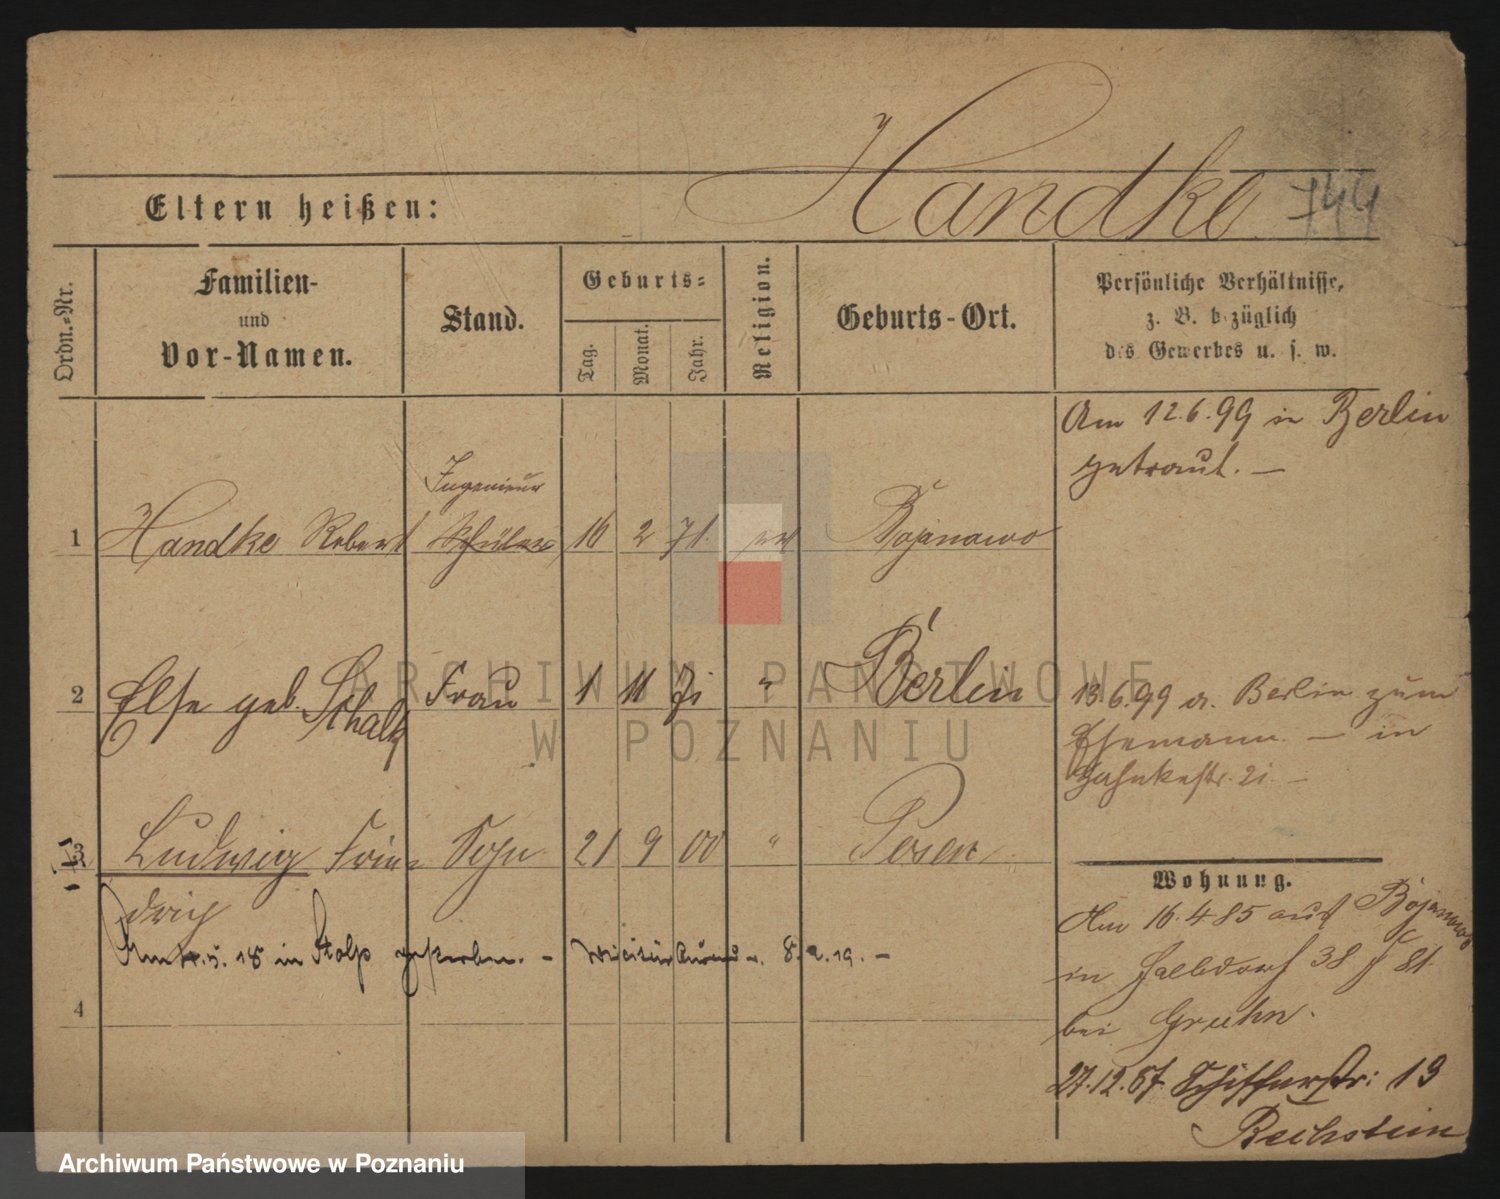 Handke 744
Eltern heißen:
Ordn.-Nr.
Familien-
und
Vor-Namen.
Stand.
Geburts-
Tag.
Monat.
Jahr.
Religion.
Geburts-Ort.
Persönliche Verhältnisse,
z. B. bezüglich
des Gewerbes u. s. w.
Am 12.6.99 in Berlin
getraut. —
Ingenieur
1 Handke Robert Schüler 16 2 71. ev Bojanowo
2 Else geb. Schalk Frau 1 11 71 " Berlin
13.6.99 a. Berlin zum
Ehemann — in
3 Ludwig Frie= Sohn 21 9 00 " Posen
drich
Am 4.5.18 in Stolp gestorben. — 8.2.19. —
4
Wohnung.
Am 16.4 85 aus Bojanowo
in Halbdorf 38
bei Gruhn.
27.12.87 Schifferstr: 13
Bechstein
ARCHIWUM PAŃSTWOWE
W POZNANIU
Archiwum Państwowe w Poznaniu